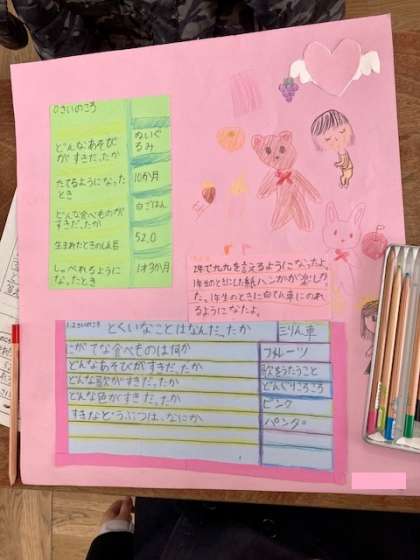 0さいのころ
どんなあそび
がすきだったか
ぬいぐ
るみ
たてるようになった
とき
10か月
どんな食べものが
すきだったか
白ごはん
生まれたときのしん長
52.0
しゃべれるように
なったとき
1才3か月
2年で九九を言えるようになったよ。
1年生のときに自てん車にのれ
るようになったよ。
とくいなことはなんだったか
三りん車
にがてな食べものは何か
フルーツ
どんなあそびがすきだったか
歌をうたうこと
どんな歌がすきだったか
どんぐりころころ
どんな色がすきだったか
ピンク
すきなどうぶつは、なにか
パンダ